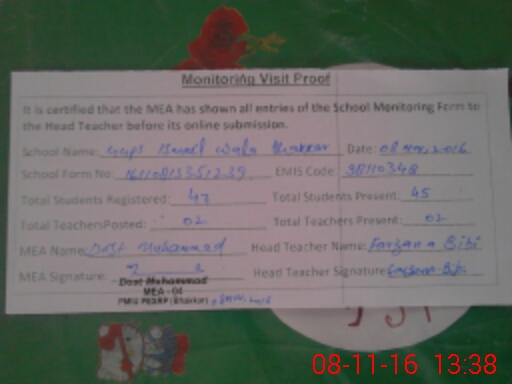 Monitoring Visit Proof
It is certified that the MEA has shown all entries of the School Monitoring Form to
the Head Teacher before its online submission.
School Name: GGPS Ismail Wala Bhakkar Date: 08 Nov, 2016
School Form No: EMIS Code: 38110348
Total Students Registered: 47 Total Students Present: 45
Total TeachersPosted: 02 Total Teachers Present: 02
MEA Name: Dost Muhammad Head Teacher Name: Farzana Bibi
MEA Signature: Head Teacher Signature: Farzana Bibi
Dost Muhammad
MEA - 04
PMIU PESRP (Bhakkar) 08 Nov, 2016
08-11-16 13:38